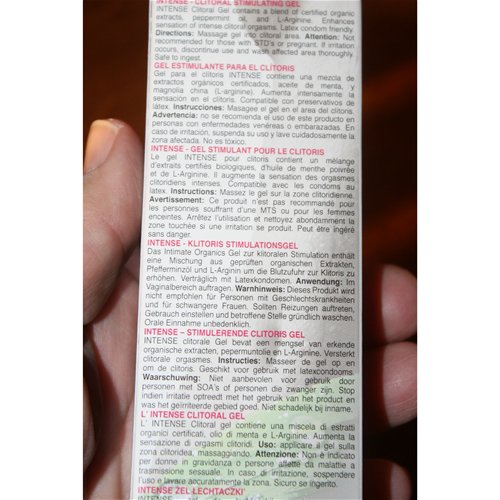 INTENSE - CLITORAL STIMULATING GEL
INTENSE Clitoral Gel contains a blend of certified organic
extracts, peppermint oil, and L-Arginine. Enhances
sensation of intense clitoral orgasms. Latex condom friendly.
Directions: Massage gel into clitoral area. Attention: Not
recommended for those with STD's or pregnant. If irritation
occurs, discontinue use and wash affected area thoroughly.
Safe to ingest.
GEL ESTIMULANTE PARA EL CLITORIS
Gel para el clitoris INTENSE contiene una mezcla de
extractos orgánicos certificados, aceite de menta, y
magnolia china (L-arginine). Aumenta intensamente la
sensación en el clitoris. Compatible con preservativos de
látex. Instrucciones: Masagee el gel en el area del clitoris.
Advertencia: no se recomienda el uso de este producto en
personas con enfermedades venéreas o embarazadas. En
caso de irritación, suspenda su uso y lave cuidadosamente la
zona afectada. No es tóxico.
INTENSE - GEL STIMULANT POUR LE CLITORIS
Le gel INTENSE pour clitoris contient un mélange
d'extraits certifiés biologiques, d'huile de menthe poivrée
et de L-Arginine. Il augmente la sensation des orgasmes
clitoridiens intenses. Compatible avec les condoms au
latex. Instructions: Massez le gel sur la zone clitoridienne.
Avertissement: Ce produit n'est pas recommandé pour
les personnes souffrant d'une MTS ou pour les femmes
enceintes. Arrêtez l'utilisation et nettoyez abondamment la
zone touchée si une irritation se produit. Peut être ingéré
sans danger.
INTENSE - KLITORIS STIMULATIONSGEL
Das Intimate Organics Gel zur klitoralen Stimulation enthält
eine Mischung aus geprüften organischen Extrakten,
Pfefferminzöl und L-Arginin um die Blutzufuhr zur Klitoris zu
erhöhen. Verträglich mit Latexkondomen. Anwendung: Im
Vaginalbereich auftragen. Warnhinweis: Dieses Produkt wird
nicht empfohlen für Personen mit Geschlechtskrankheiten
und für schwangere Frauen. Sollten Reizungen auftreten,
Gebrauch einstellen und betroffene Stelle gründlich waschen.
Orale Einnahme unbedenklich.
INTENSE – STIMULERENDE CLITORIS GEL
INTENSE clitorale Gel bevat een mengsel van erkende
organische extracten, pepermuntolie en L-Arginine. Versterkt
clitorale orgasmes. Instructies: Masseer de gel op en
om de clitoris. Geschikt voor gebruik met latexcondooms.
Waarschuwing: Niet aanbevolen voor gebruik door
personen met SOA's of personen die zwanger zijn. Stop
indien irritatie optreedt met het gebruik van het product en
was het geïrriteerde gebied goed. Niet schadelijk bij inname.
L' INTENSE CLITORAL GEL
L' INTENSE Clitoral gel contiene una miscela di estratti
organici certificati, olio di menta e L-Arginine. Aumenta la
sensazione di orgasmi clitoridi. Uso: applicare il gel sulla
zona clitoridea, massaggiando. Attenzione: Non è indicato
per donne in gravidanza o persone affette da malattie a
trasmissione sessuale. In caso di irritazione, sospendere
l'uso e lavare accuratamente la zona. Sicuro se ingerito.
INTENSE ŻEL ŁECHTACZKI'